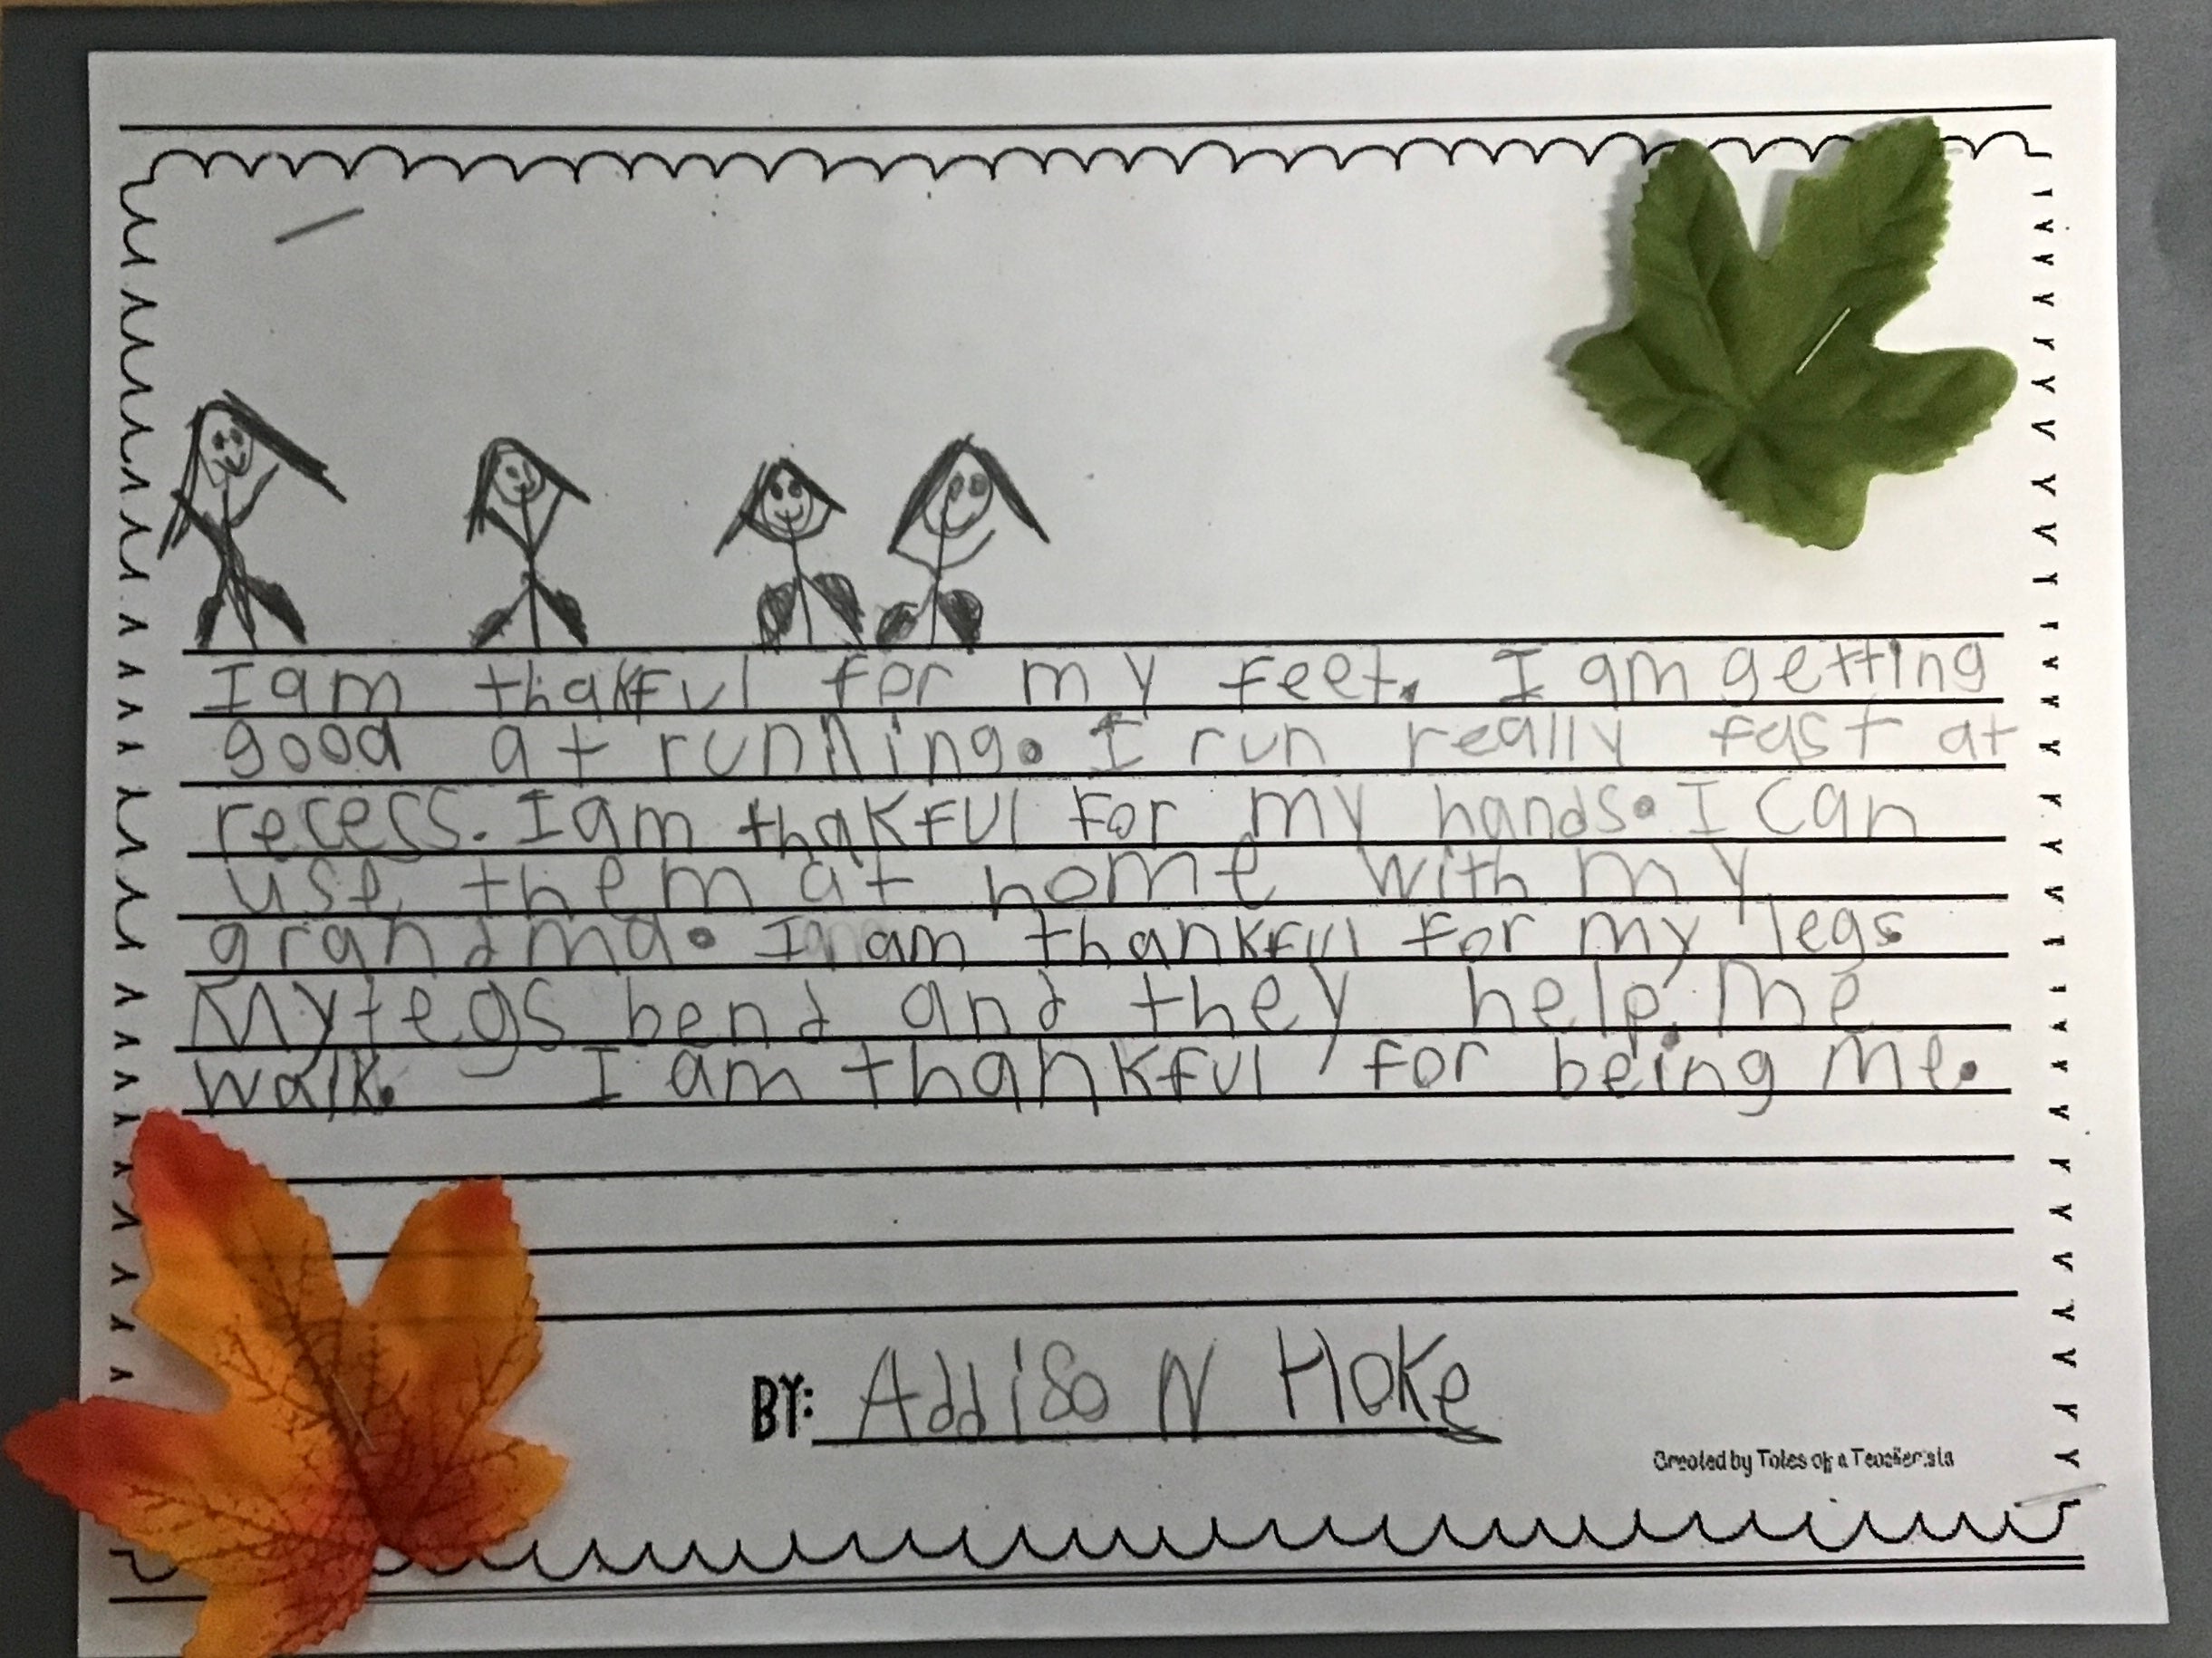 I am thakful for my feet. I am getting
good at running. I run really fast at
recess. I am thakful for my hands. I can
use them at home with my
grandma. I am thankful for my legs
My legs bend and they help me
walk. I am thankful for being me.
BY: Addison Hoke
Created by Tales of a Teacherista